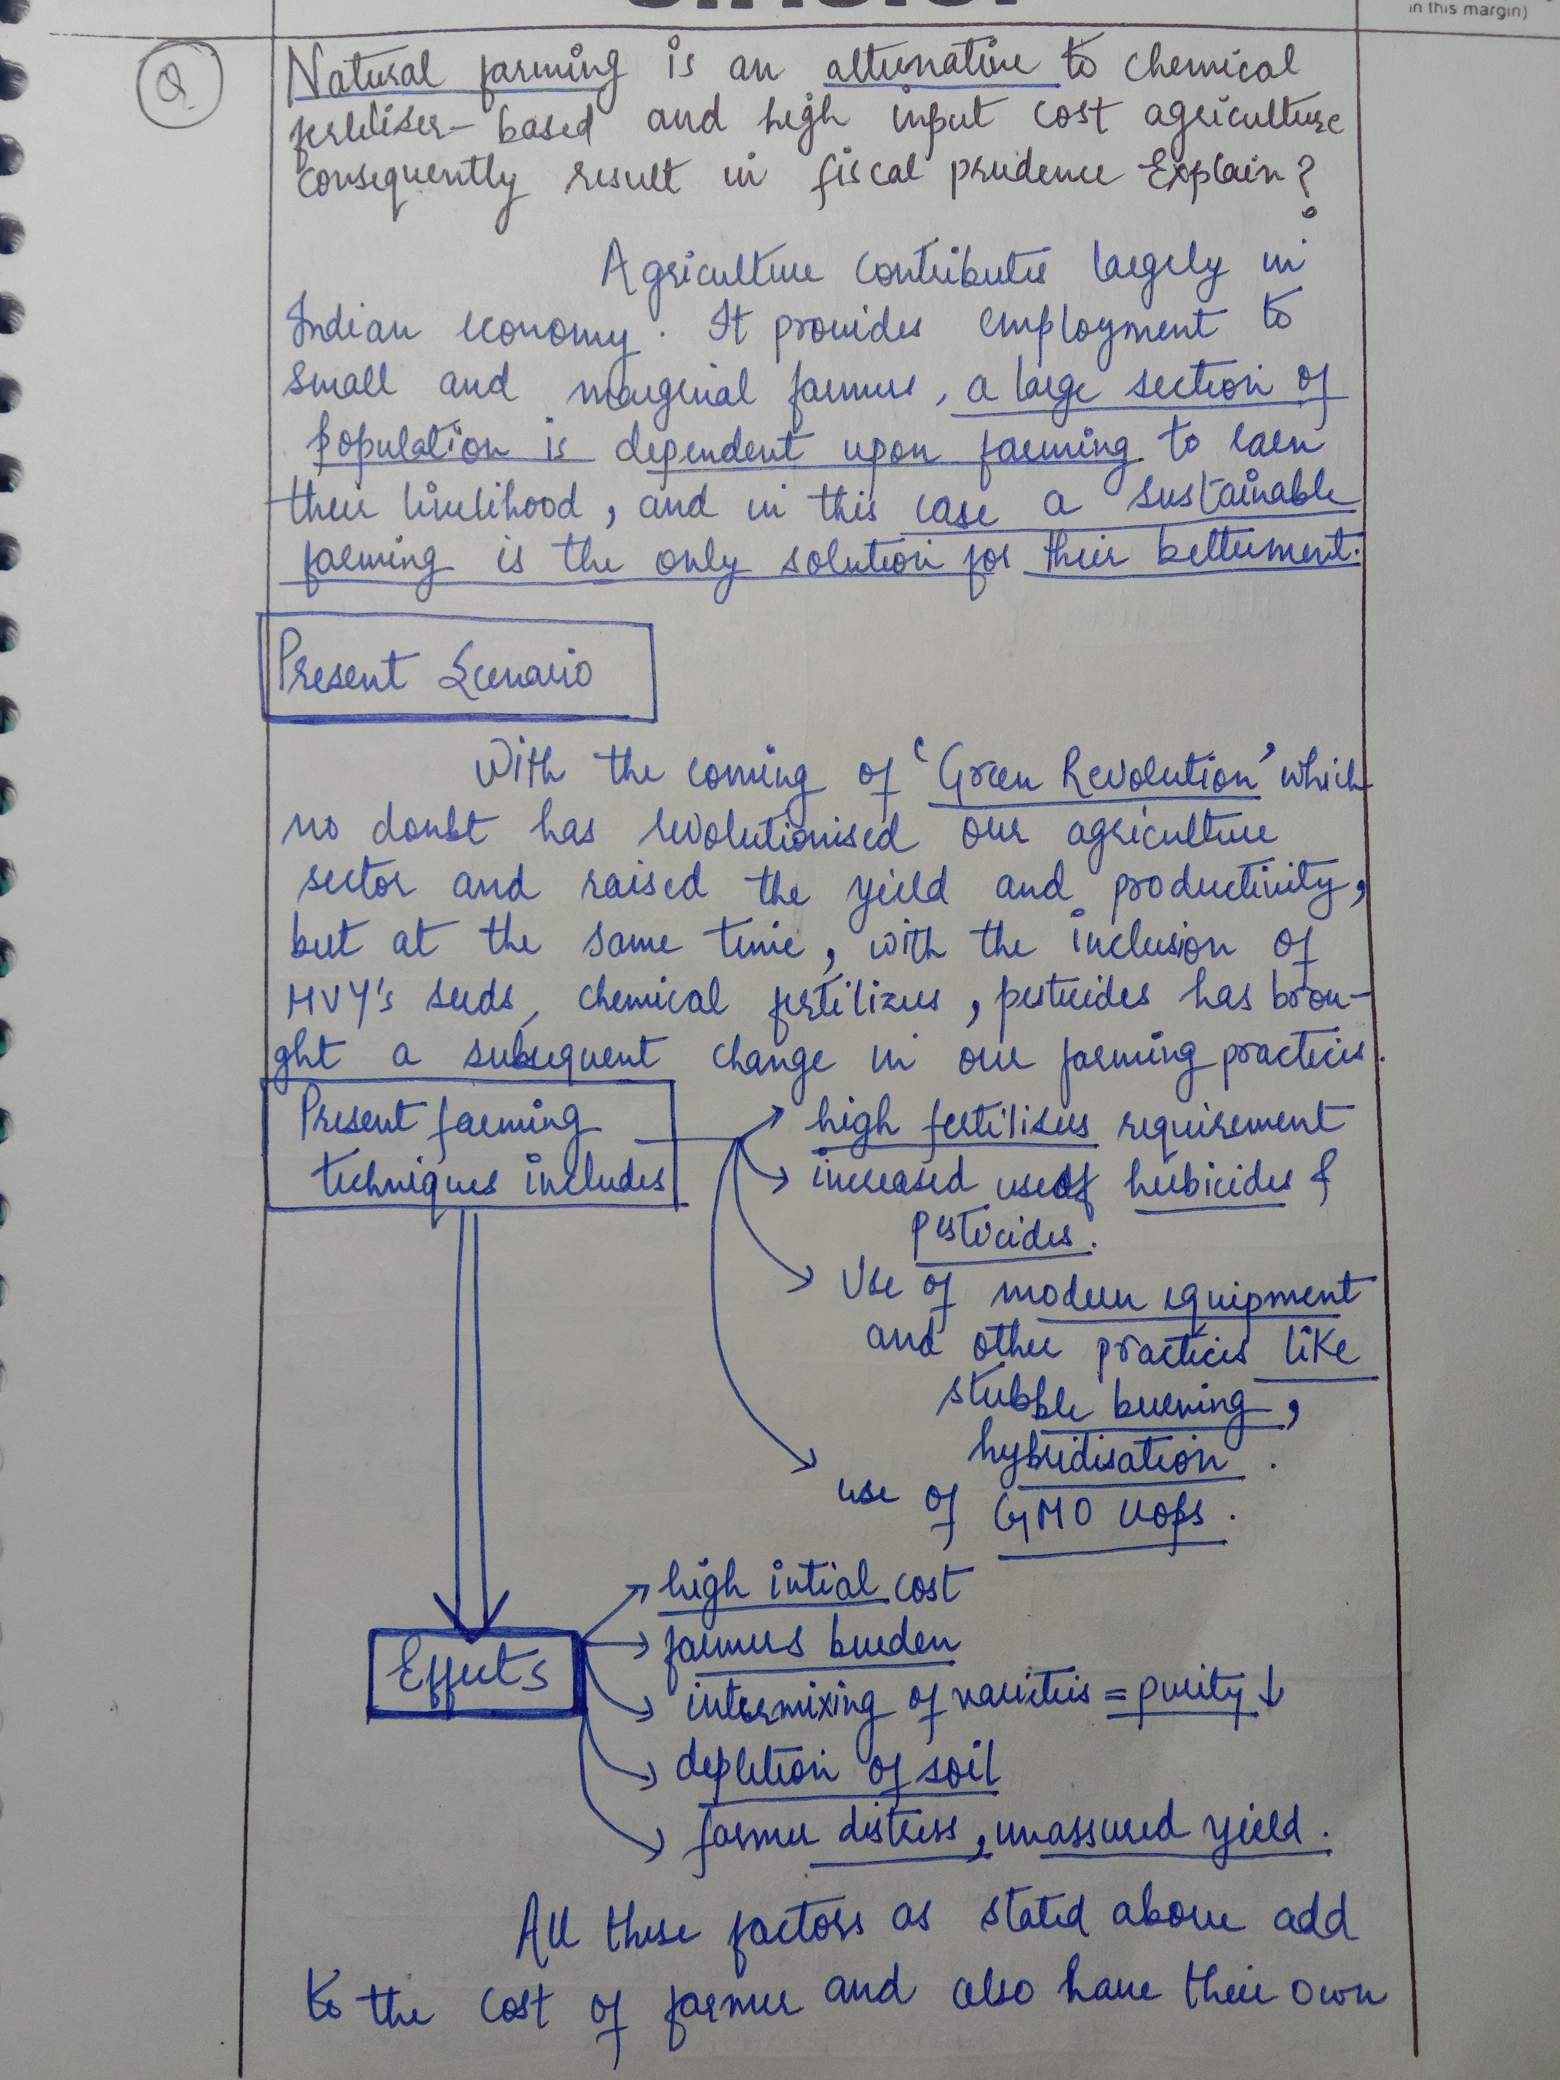 in this margin)
Q
Natural farming is an alternative to chemical
fertiliser-based and high input cost agriculture
consequently result in fiscal prudence Explain?
Agriculture contributes largely in
Indian economy. It provides employment to
small and marginal farmers, a large section of
population is dependent upon farming to earn
their livelihood, and in this case a sustainable
farming is the only solution for their betterment.
Present Scenario
With the coming of 'Green Revolution' which
no doubt has revolutionised our agriculture
sector and raised the yield and productivity,
but at the same time, with the inclusion of
HVY's seeds, chemical fertilizers, pesticides has brou-
ght a subsequent change in our farming practices.
Present farming
techniques includes
high fertilisers requirement
increased use of herbicides &
pesticides.
Use of modern equipment
and other practices like
stubble burning,
hybridisation.
use of GMO crops.
Effects
high intial cost
farmers burden
intermixing of varieties = purity ↓
depletion of soil
farmer distress, unassured yield.
All these factors as stated above add
to the cost of farmer and also have their own